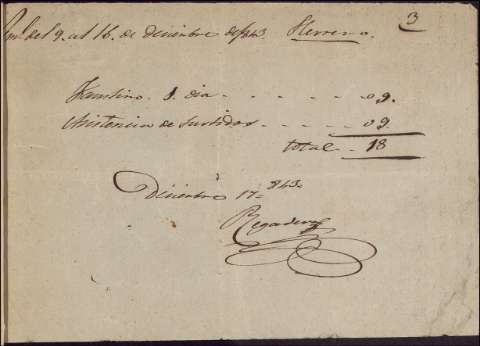 3
del 9. al 16. de Diciembre de 843. Herrero.
Faustino. 1. dia - - - - - - 09.
Asistencia de Surtidos - - - - 09
total - - 18
Diciembre 17 = 843.